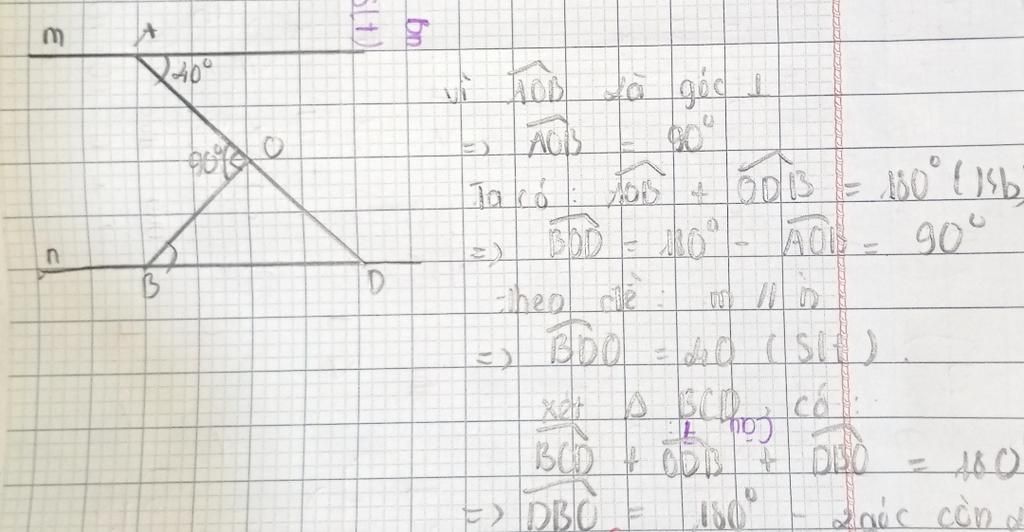 m A
40°
90° O
n B D
vì AOB là góc ⊥
=> AOB = 90°
Ta có: AOB + ODB = 180° (
=> BOD = 180° - AO = 90°
theo đề: m // n
=> BDO = 40 (slt).
xét Δ BOD có:
BOD + ODB + DBO = 180
=> DBO = 180° - 2 góc còn
Câu